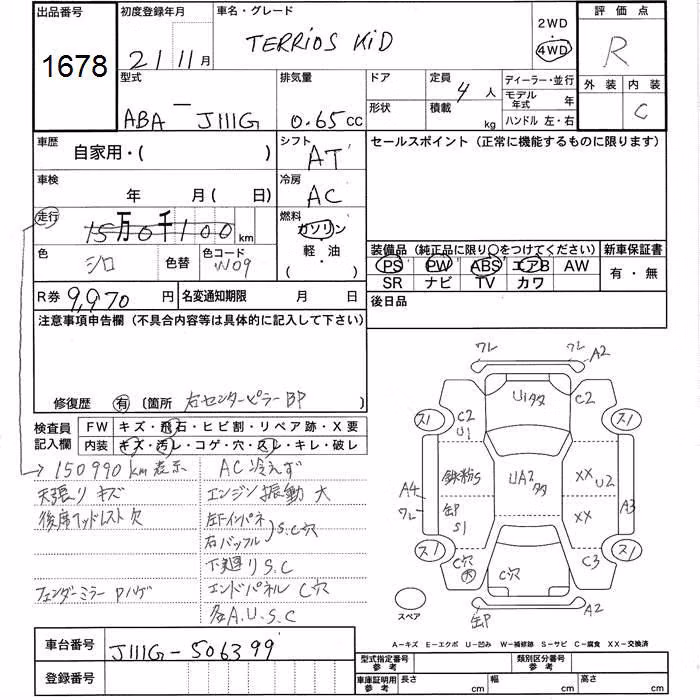 出品番号
1678
初度登録年月
21 11月
車名・グレード
TERRIOS KID
2WD
4WD
評価点
R
外装 内装
C
型式
ABA - J111G
排気量
0.65 cc
ドア
形状
定員
4 人
積載
kg
ディーラー・並行
モデル年式 年
ハンドル 左・右
車歴
自家用・( )
シフト
AT
セールスポイント(正常に機能するものに限ります)
車検
年 月( 日)
冷房
AC
走行
15万0千100 km
燃料
ガソリン
軽・油
( ・ )
色
シロ
色替
色コード
W09
装備品(純正品に限り○をつけてください)
新車保証書
PS PW ABS エアB AW
SR ナビ TV カワ
有・無
R券 9,970 円
名変通知期限 月 日
後日品
注意事項申告欄(不具合内容等は具体的に記入して下さい)
修復歴 有 (箇所 右センターピラーBP )
検査員記入欄
FW キズ・飛石・ヒビ割・リペア跡・X要
内装 キズ・汚レ・コゲ・穴・スレ・キレ・破レ
150990km表示
AC冷えず
天張りキズ
エンジン振動大
後席ヘッドレスト欠
左下インパネ
右バッフル
S.C穴
下廻りS.C
フェンダーミラーPハゲ
エンドパネルC穴
各A.U.S.C
ワレ
ワレ
A2
U1タタ
C2
C2
U1
ス1
ス1
鉄粉S
UA2
タタ
XX
U2
A4
ワレ
缶P
S1
XX
A3
ス1
ス1
C穴
大
C穴
C3
スペア
缶P
A2
A−キズ E−エクボ U−凹み W−補修跡 S−サビ C−腐食 XX−交換済
車台番号
J111G-506399
登録番号
型式指定番号 参考
類別区分番号 参考
車庫証明用 参考
長さ cm
幅 cm
高さ cm